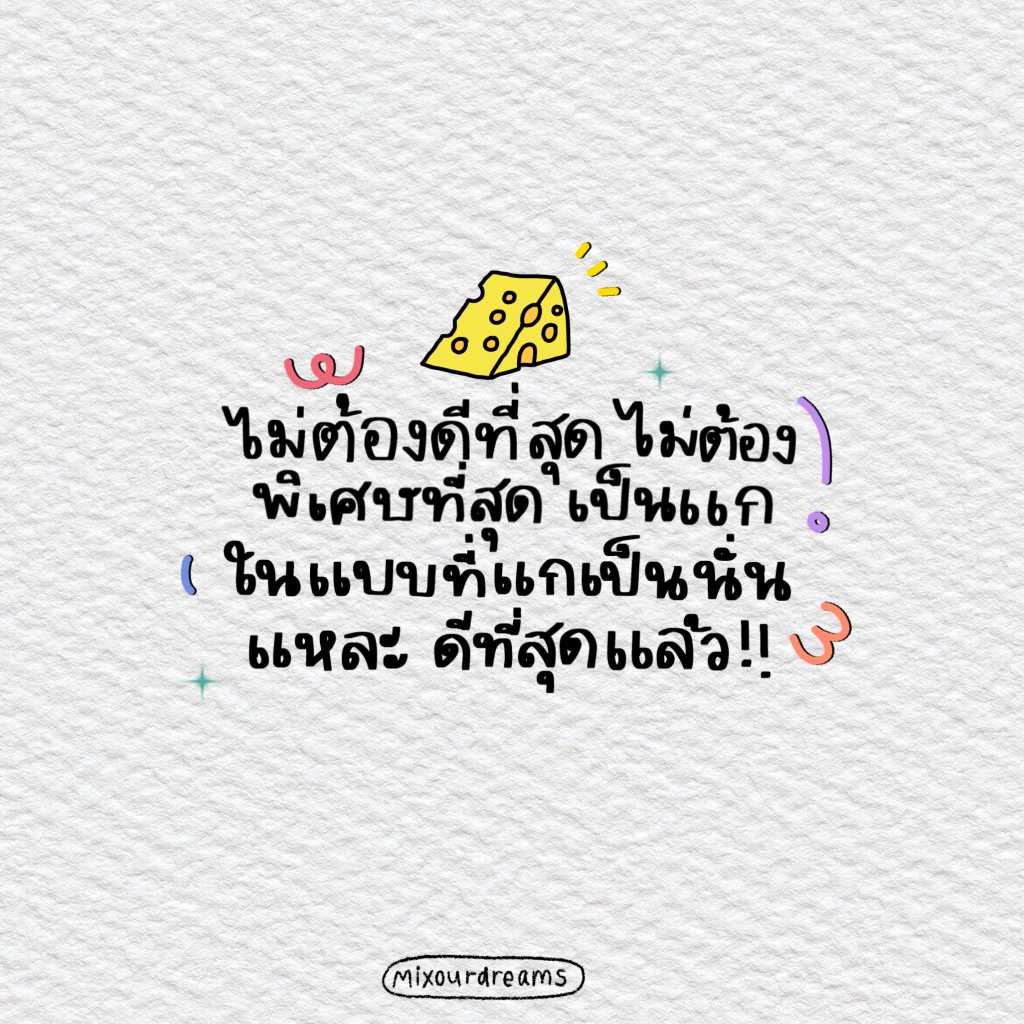 ไม่ต้องดีที่สุด ไม่ต้อง
พิเศษที่สุด เป็นแก
ในแบบที่แกเป็นนั่น
แหละ ดีที่สุดแล้ว!!
mixourdreams